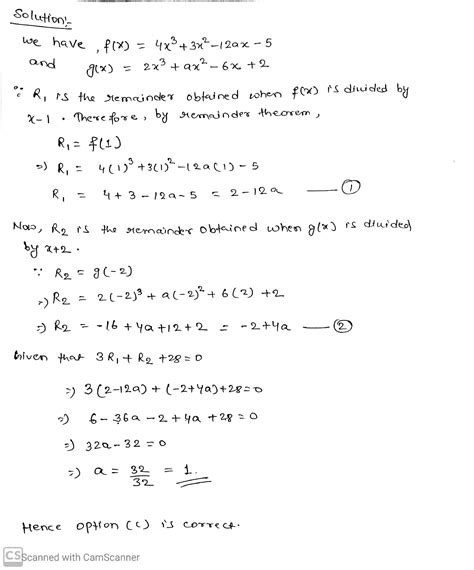 Solution:-
we have, f(x) = 4x³+3x²-12ax-5
and g(x) = 2x³+ax²-6x+2
∵ R₁ is the remainder obtained when f(x) is divided by
x-1. Therefore, by remainder theorem,
R₁ = f(1)
=) R₁ = 4(1)³+3(1)²-12a(1)-5
R₁ = 4+3-12a-5 = 2-12a —— ①
Now, R₂ is the remainder obtained when g(x) is divided
by x+2.
∵ R₂ = g(-2)
=) R₂ = 2(-2)³+a(-2)²+6(2)+2
=) R₂ = -16+4a+12+2 = -2+4a —— ②
Given that 3R₁+R₂+28=0
=) 3(2-12a)+(-2+4a)+28=0
=) 6-36a-2+4a+28=0
=) 32a-32=0
=) a = 32/32 = 1.
Hence option (c) is correct.
CS Scanned with CamScanner